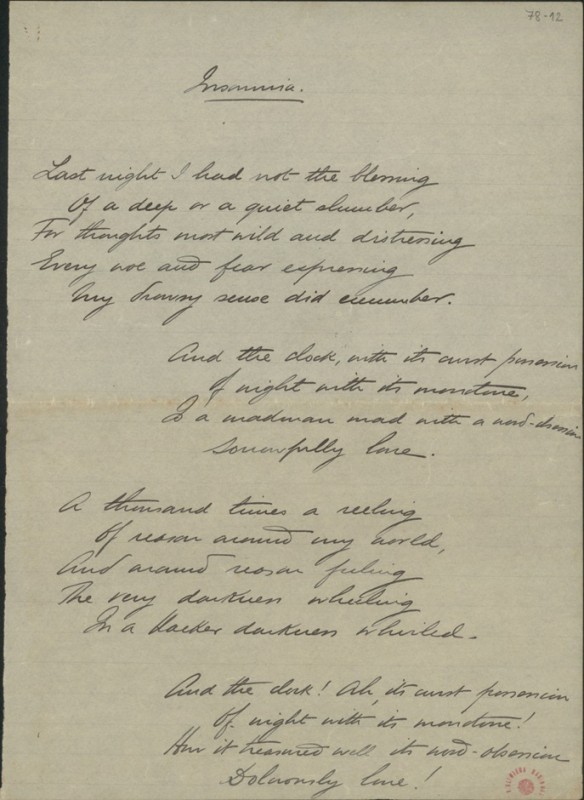 78-12
Insomnia.
Last night I had not the blessing
Of a deep or a quiet slumber,
For thoughts most wild and distressing
Every woe and fear expressing
My drowsy sense did cumber.
And the clock, with its curst possession
Of night with its monotone,
Is a madman mad with a word-obsession
Sorrowfully lone.
A thousand times a reeling
Of reason around my world,
And around reason feeling
The very darkness wheeling
In a blacker darkness whirled.
And the clock! Ah, its curst possession
Of night with its monotone!
How it treasured well its word-obsession
Dolorously lone!